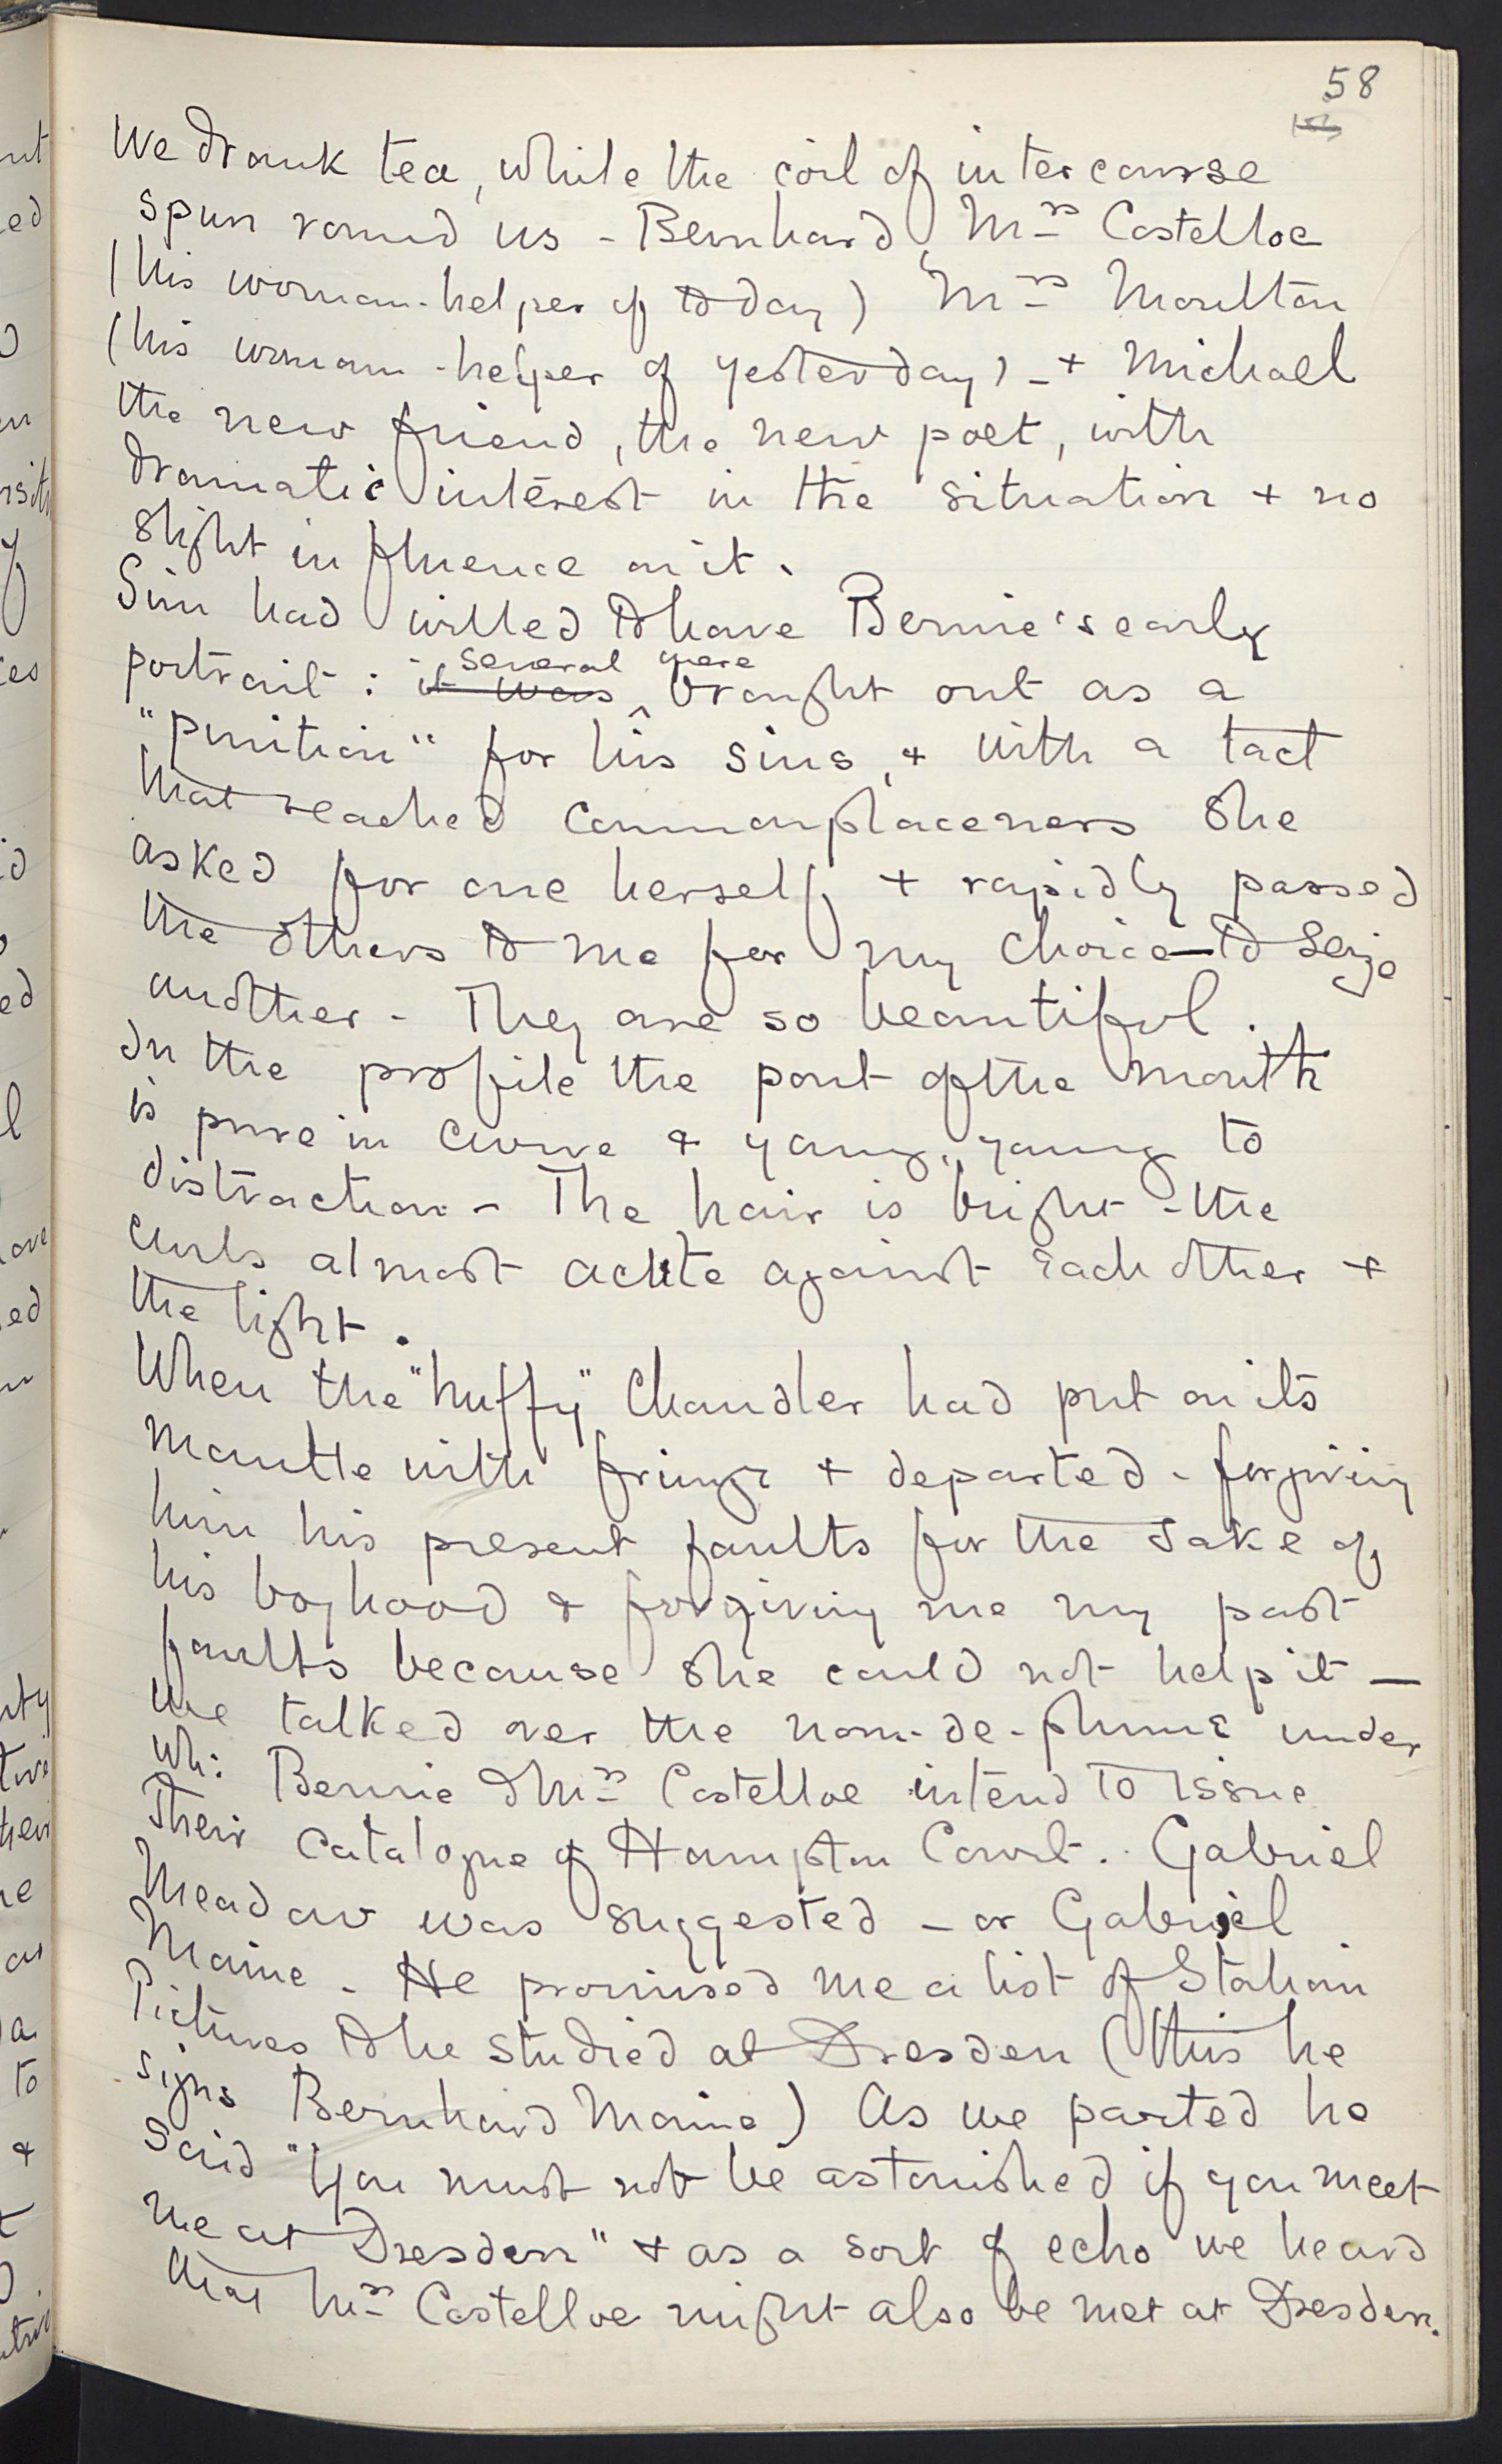 58
We drank tea, while the coil of intercourse
spun round us - Bernhard, Mrs Costelloe
(his woman-helper of to day) Mrs Moulton
(his woman-helper of yesterday) - + Michael
the new friend, the new poet, with
dramatic interest in the situation + no
slight influence on it.
Sim had willed to have Bernie's early
portrait : it was several were brought out as a
"punition" for his sins, + with a tact
that reached commonplaceness she
asked for one herself, + rapidly passed
the others to me for my choice - to seize
another - They are so beautiful.
In the profile the pout of the mouth
is pure in curve + young, young to
distraction - The hair is bright - the
curls almost acute against each other +
the light.
When the "huffy" Chandler had put on its
mantle with fringe + departed - forgiving
him his present faults for the sake of
his boyhood & forgiving me my past
faults because she could not help it —
we talked over the nom-de-plume under
wh: Bernie & Mrs Costelloe intend to issue
Their Catalogue of Hampton Court. Gabriel
Meadow was suggested - or Gabriel
Maine - He promised me a list of Italian
Pictures to be studied at Dresden (this he
signs Bernhard Maine) As we parted he
said "You must not be astonished if you meet
me at Dresden" + as a sort of echo we heard
that Mrs Costelloe might also be met at Dresden.